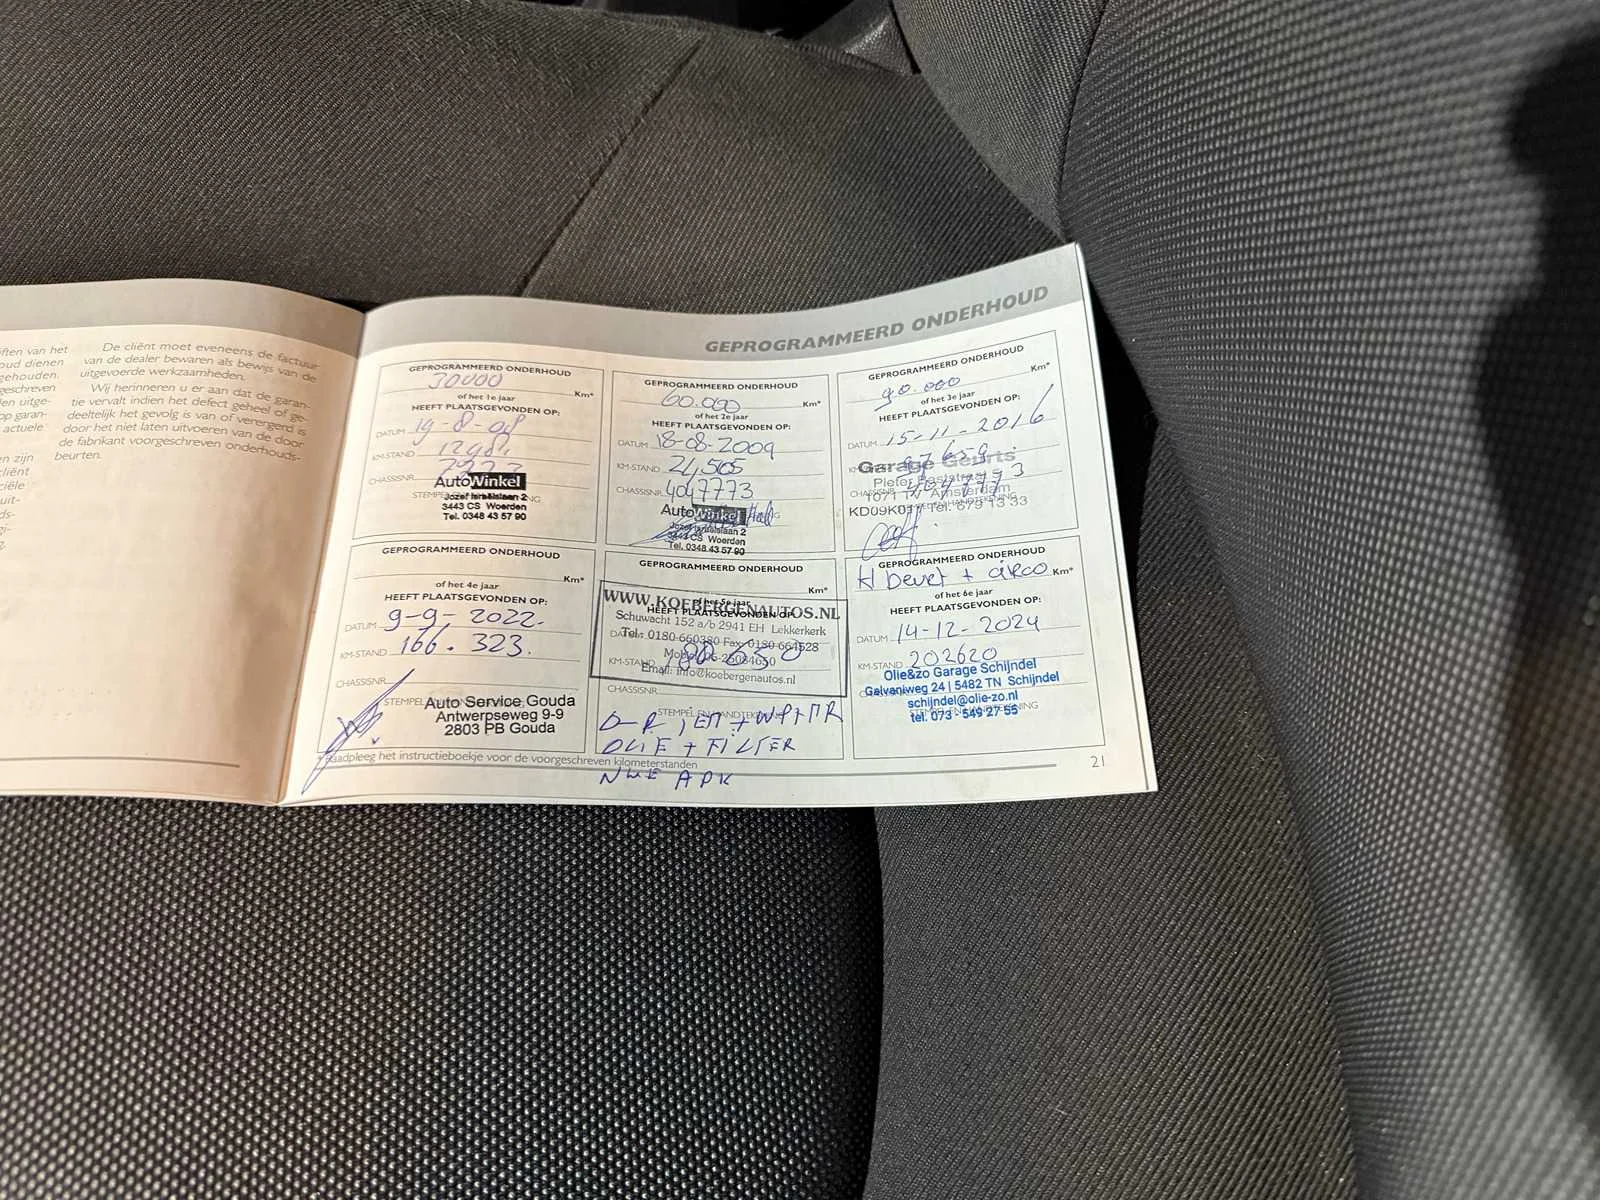 De cliënt moet eveneens de factuur
van de dealer bewaren als bewijs van de
uitgevoerde werkzaamheden.
Wij herinneren u er aan dat de garan-
tie vervalt indien het defect geheel of ge-
deeltelijk het gevolg is van of verergerd is
door het niet laten uitvoeren van de door
de fabrikant voorgeschreven onderhouds-
beurten.
ften van het
oud dienen
gehouden.
geschreven
en uitge-
op garan-
actuele
en zijn
cliënt
ciële
uit-
GEPROGRAMMEERD ONDERHOUD
GEPROGRAMMEERD ONDERHOUD
30000 Km*
of het 1e jaar
HEEFT PLAATSGEVONDEN OP:
DATUM 19-8-08
KM-STAND
CHASSISNR.
AutoWinkel
Jozef Israëlslaan 2
3443 CS Woerden
Tel. 0348 43 57 90
GEPROGRAMMEERD ONDERHOUD
60.000 Km*
of het 2e jaar
HEEFT PLAATSGEVONDEN OP:
DATUM 18-08-2009
KM-STAND 24,505
CHASSISNR. 4047773
AutoWinkel
Jozef Israëlslaan 2
3443 CS Woerden
Tel. 0348 43 57 90
GEPROGRAMMEERD ONDERHOUD
90.000 Km*
of het 3e jaar
HEEFT PLAATSGEVONDEN OP:
DATUM 15-11-2016
Garage Geurts
1071 TV Amsterdam
Tel. 679 13 33
GEPROGRAMMEERD ONDERHOUD
Km*
of het 4e jaar
HEEFT PLAATSGEVONDEN OP:
DATUM 9-9-2022.
KM-STAND 166.323.
CHASSISNR.
Auto Service Gouda
Antwerpseweg 9-9
2803 PB Gouda
GEPROGRAMMEERD ONDERHOUD
Km*
of het 5e jaar
HEEFT PLAATSGEVONDEN OP:
WWW.KOEBERGENAUTOS.NL
Schuwacht 152 a/b 2941 EH Lekkerkerk
Tel: 0180-660380 Fax: 0180-664528
KM-STAND 180650
Email: info@koebergenautos.nl
CHASSISNR.
STEMPEL EN HANDTEKENING
OLIE + FILTER
NWE APK
GEPROGRAMMEERD ONDERHOUD
Kl beurt + airco Km*
of het 6e jaar
HEEFT PLAATSGEVONDEN OP:
DATUM 14-12-2024
KM-STAND 202620
Olie&zo Garage Schijndel
Galvaniweg 24 | 5482 TN Schijndel
schijndel@olie-zo.nl
tel. 073 - 549 27 55
Raadpleeg het instructieboekje voor de voorgeschreven kilometerstanden
21